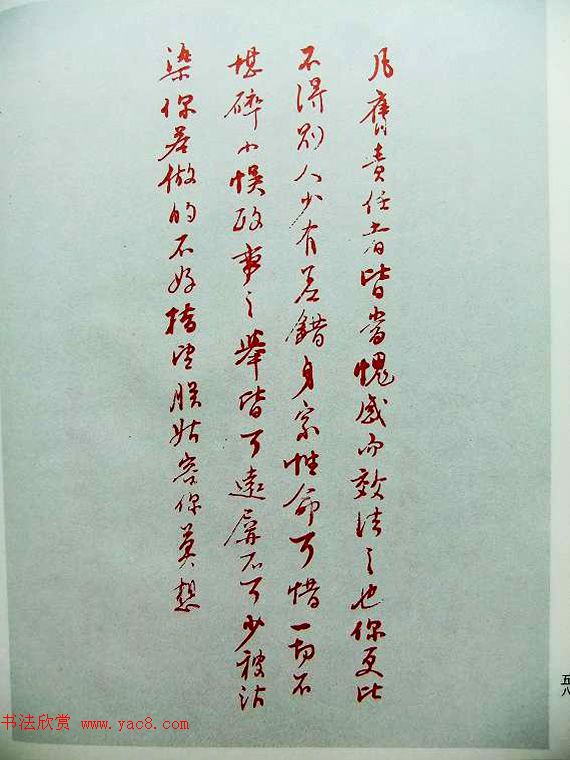 凡膺責任者皆當愧感而效法之也你更比
不得別人少有差錯身家性命可惜一切不
堪碎小悞政事之舉皆可遠屏不可少被沾
染你若做的不好指望朕姑容你莫想
五八
书法欣赏 www.yac8.com